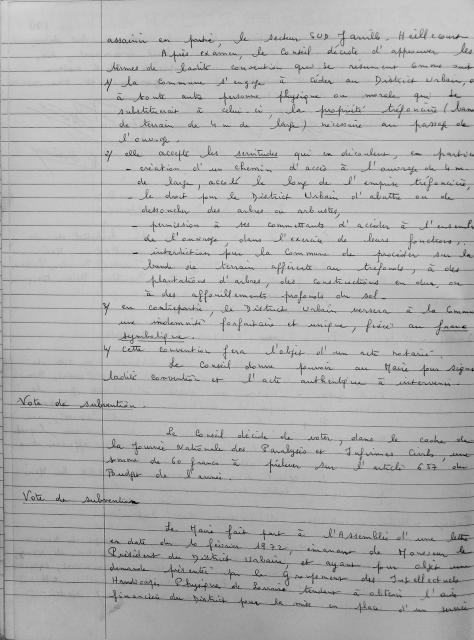 assainir en partie, le secteur SUD Jarville-Heillecourt
Après examen, le Conseil décide d'approuver les
termes de ladite convention qui se résument comme suit
1/ la Commune s'engage à céder au District Urbain, ou
à toute autre personne physique ou morale qui se
substituerait à celui-ci, la propriété tréfoncière (bande
de terrain de 4 m de large) nécessaire au passage de
l'ouvrage.
2/ elle accepte les servitudes qui en découlent, en particu
- création d'un chemin d'accès à l'ouvrage de 4 m
de large, accolé le long de l'emprise tréfoncière,
- le droit pour le District Urbain d'abattre ou de
dessoucher des arbres ou arbustes,
- permission à ses commettants d'accéder à l'ensemb
de l'ouvrage, dans l'exercice de leurs fonctions,
- interdiction pour la Commune de procéder sur la
bande de terrain afférente au tréfonds, à des
plantations d'arbres, des constructions en dur, ou
à des affouillements profonds du sol.
3/ en contrepartie, le District Urbain versera à la Commu
une indemnité forfaitaire et unique, fixée au franc
symbolique.
4/ cette convention fera l'objet d'un acte notarié.
Le Conseil donne pouvoir au Maire pour signe
ladite convention et l'acte authentique à intervenir.
Vote de subvention.
Le Conseil décide de voter, dans le cadre de
la Journée Nationale des Paralysés et Infirmes Civils, une
somme de 60 francs à prélever sur l'article 657 du
Budget de l'année.
Vote de subvention
Le Maire fait part à l'Assemblée d'une lettre
en date du 10 février 1972, émanant de Monsieur le
Président du District Urbain, et ayant pour objet une
demande présentée par le Groupement des Intellectuels
Handicapés Physiques de Lorraine tendant à obtenir l'aide
financière du District pour la mise en place d'un service